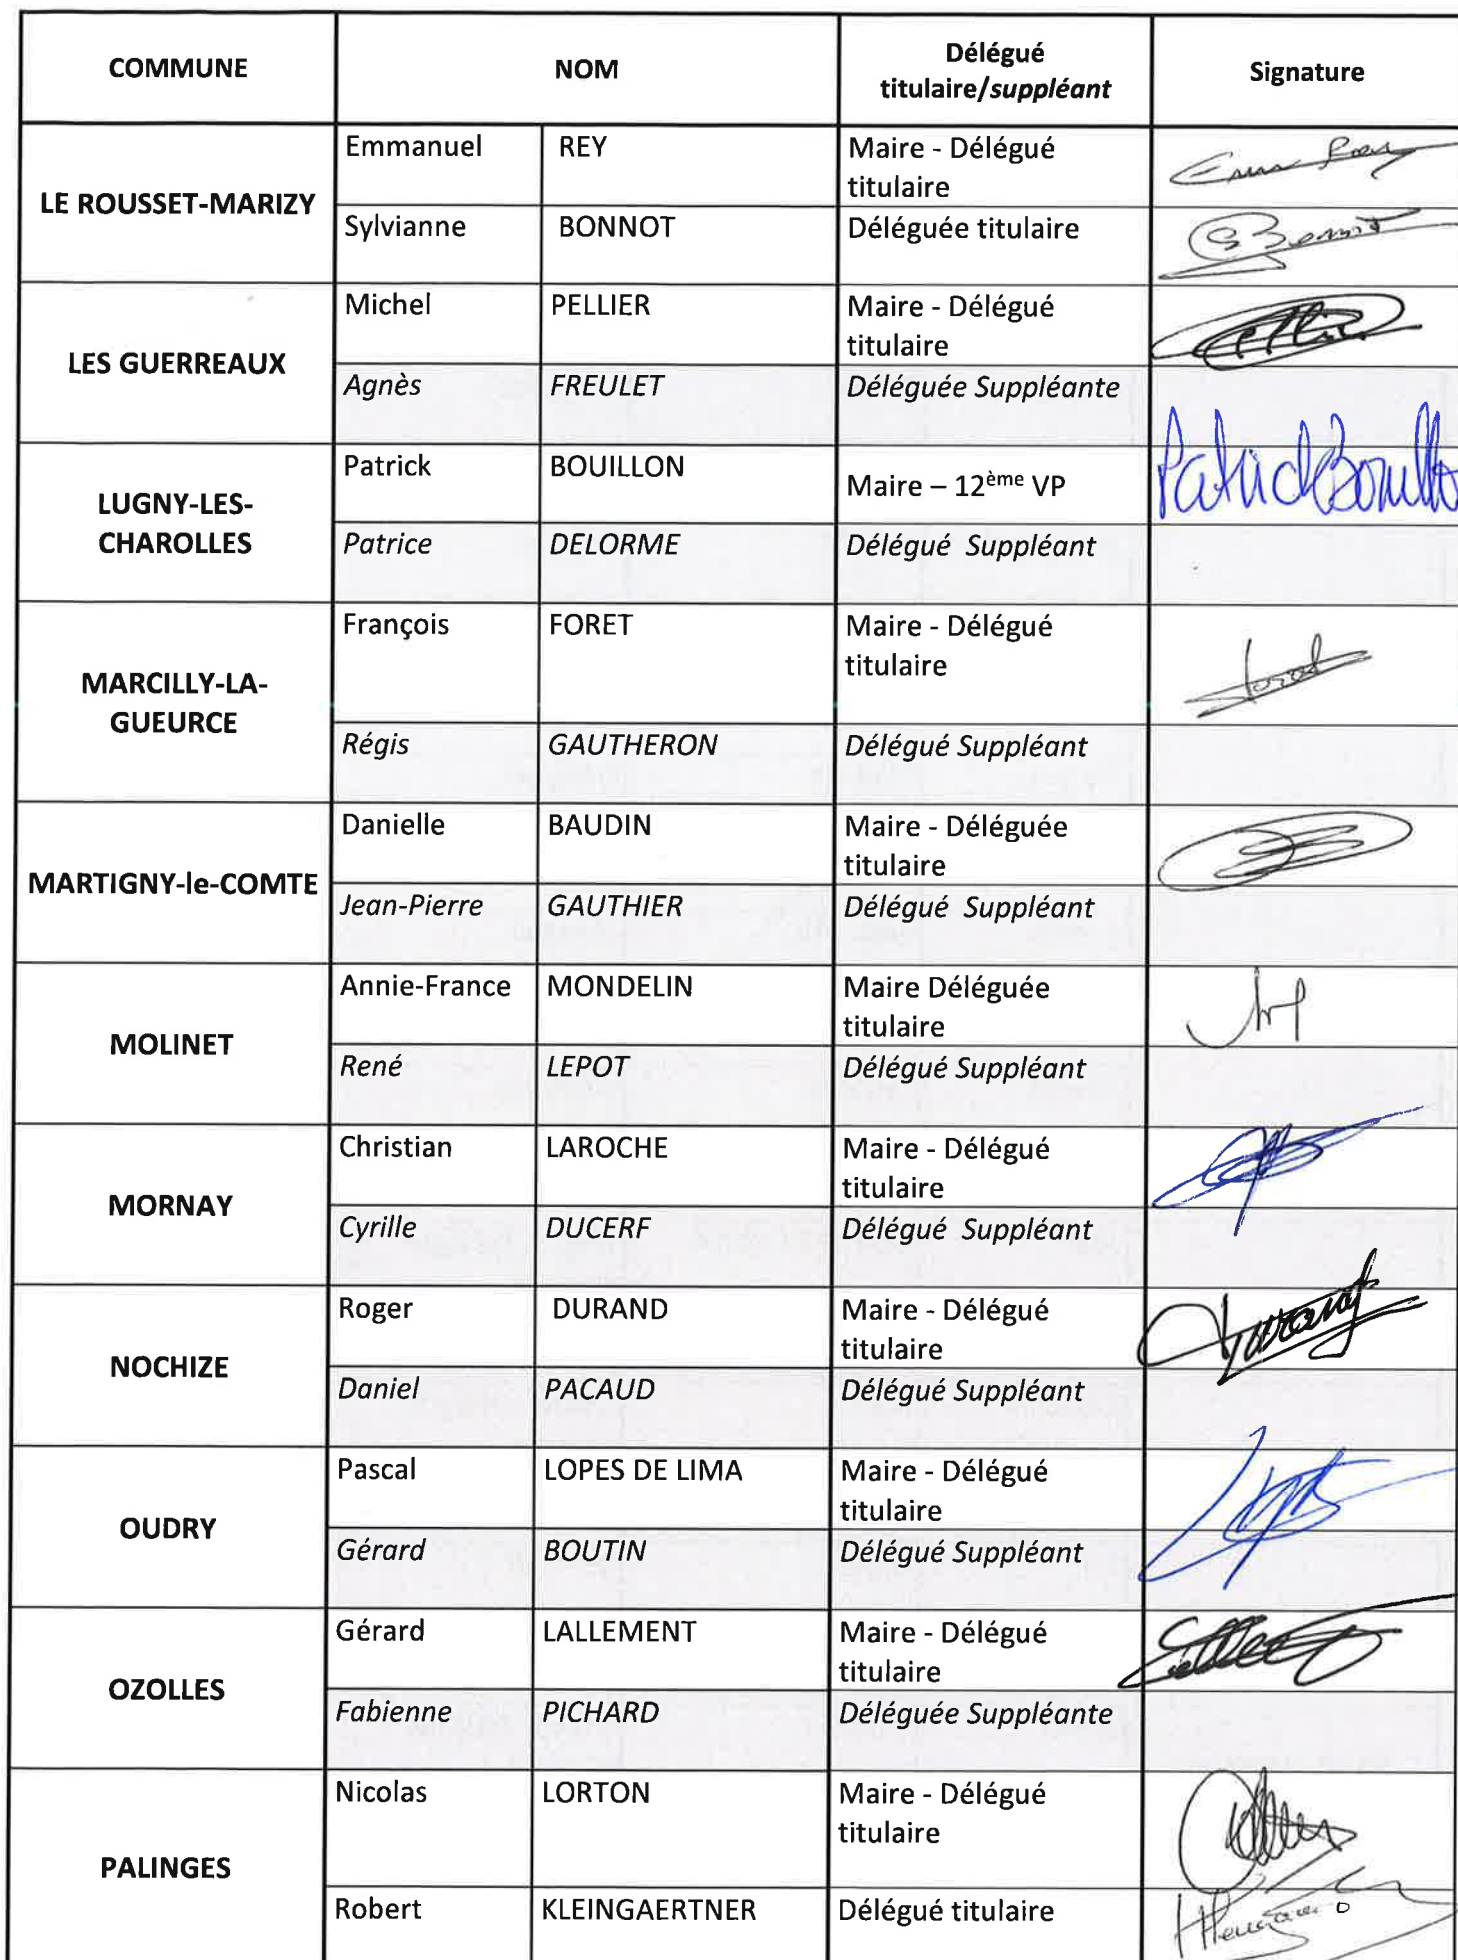 COMMUNE NOM Délégué titulaire/suppléant Signature
LE ROUSSET-MARIZY
Emmanuel REY Maire - Délégué titulaire
Sylvianne BONNOT Déléguée titulaire
LES GUERREAUX
Michel PELLIER Maire - Délégué titulaire
Agnès FREULET Déléguée Suppléante
LUGNY-LES-CHAROLLES
Patrick BOUILLON Maire – 12ème VP Patrick Bouillon
Patrice DELORME Délégué Suppléant
MARCILLY-LA-GUEURCE
François FORET Maire - Délégué titulaire
Régis GAUTHERON Délégué Suppléant
MARTIGNY-le-COMTE
Danielle BAUDIN Maire - Déléguée titulaire
Jean-Pierre GAUTHIER Délégué Suppléant
MOLINET
Annie-France MONDELIN Maire Déléguée titulaire
René LEPOT Délégué Suppléant
MORNAY
Christian LAROCHE Maire - Délégué titulaire
Cyrille DUCERF Délégué Suppléant
NOCHIZE
Roger DURAND Maire - Délégué titulaire Durand
Daniel PACAUD Délégué Suppléant
OUDRY
Pascal LOPES DE LIMA Maire - Délégué titulaire
Gérard BOUTIN Délégué Suppléant
OZOLLES
Gérard LALLEMENT Maire - Délégué titulaire
Fabienne PICHARD Déléguée Suppléante
PALINGES
Nicolas LORTON Maire - Délégué titulaire
Robert KLEINGAERTNER Délégué titulaire